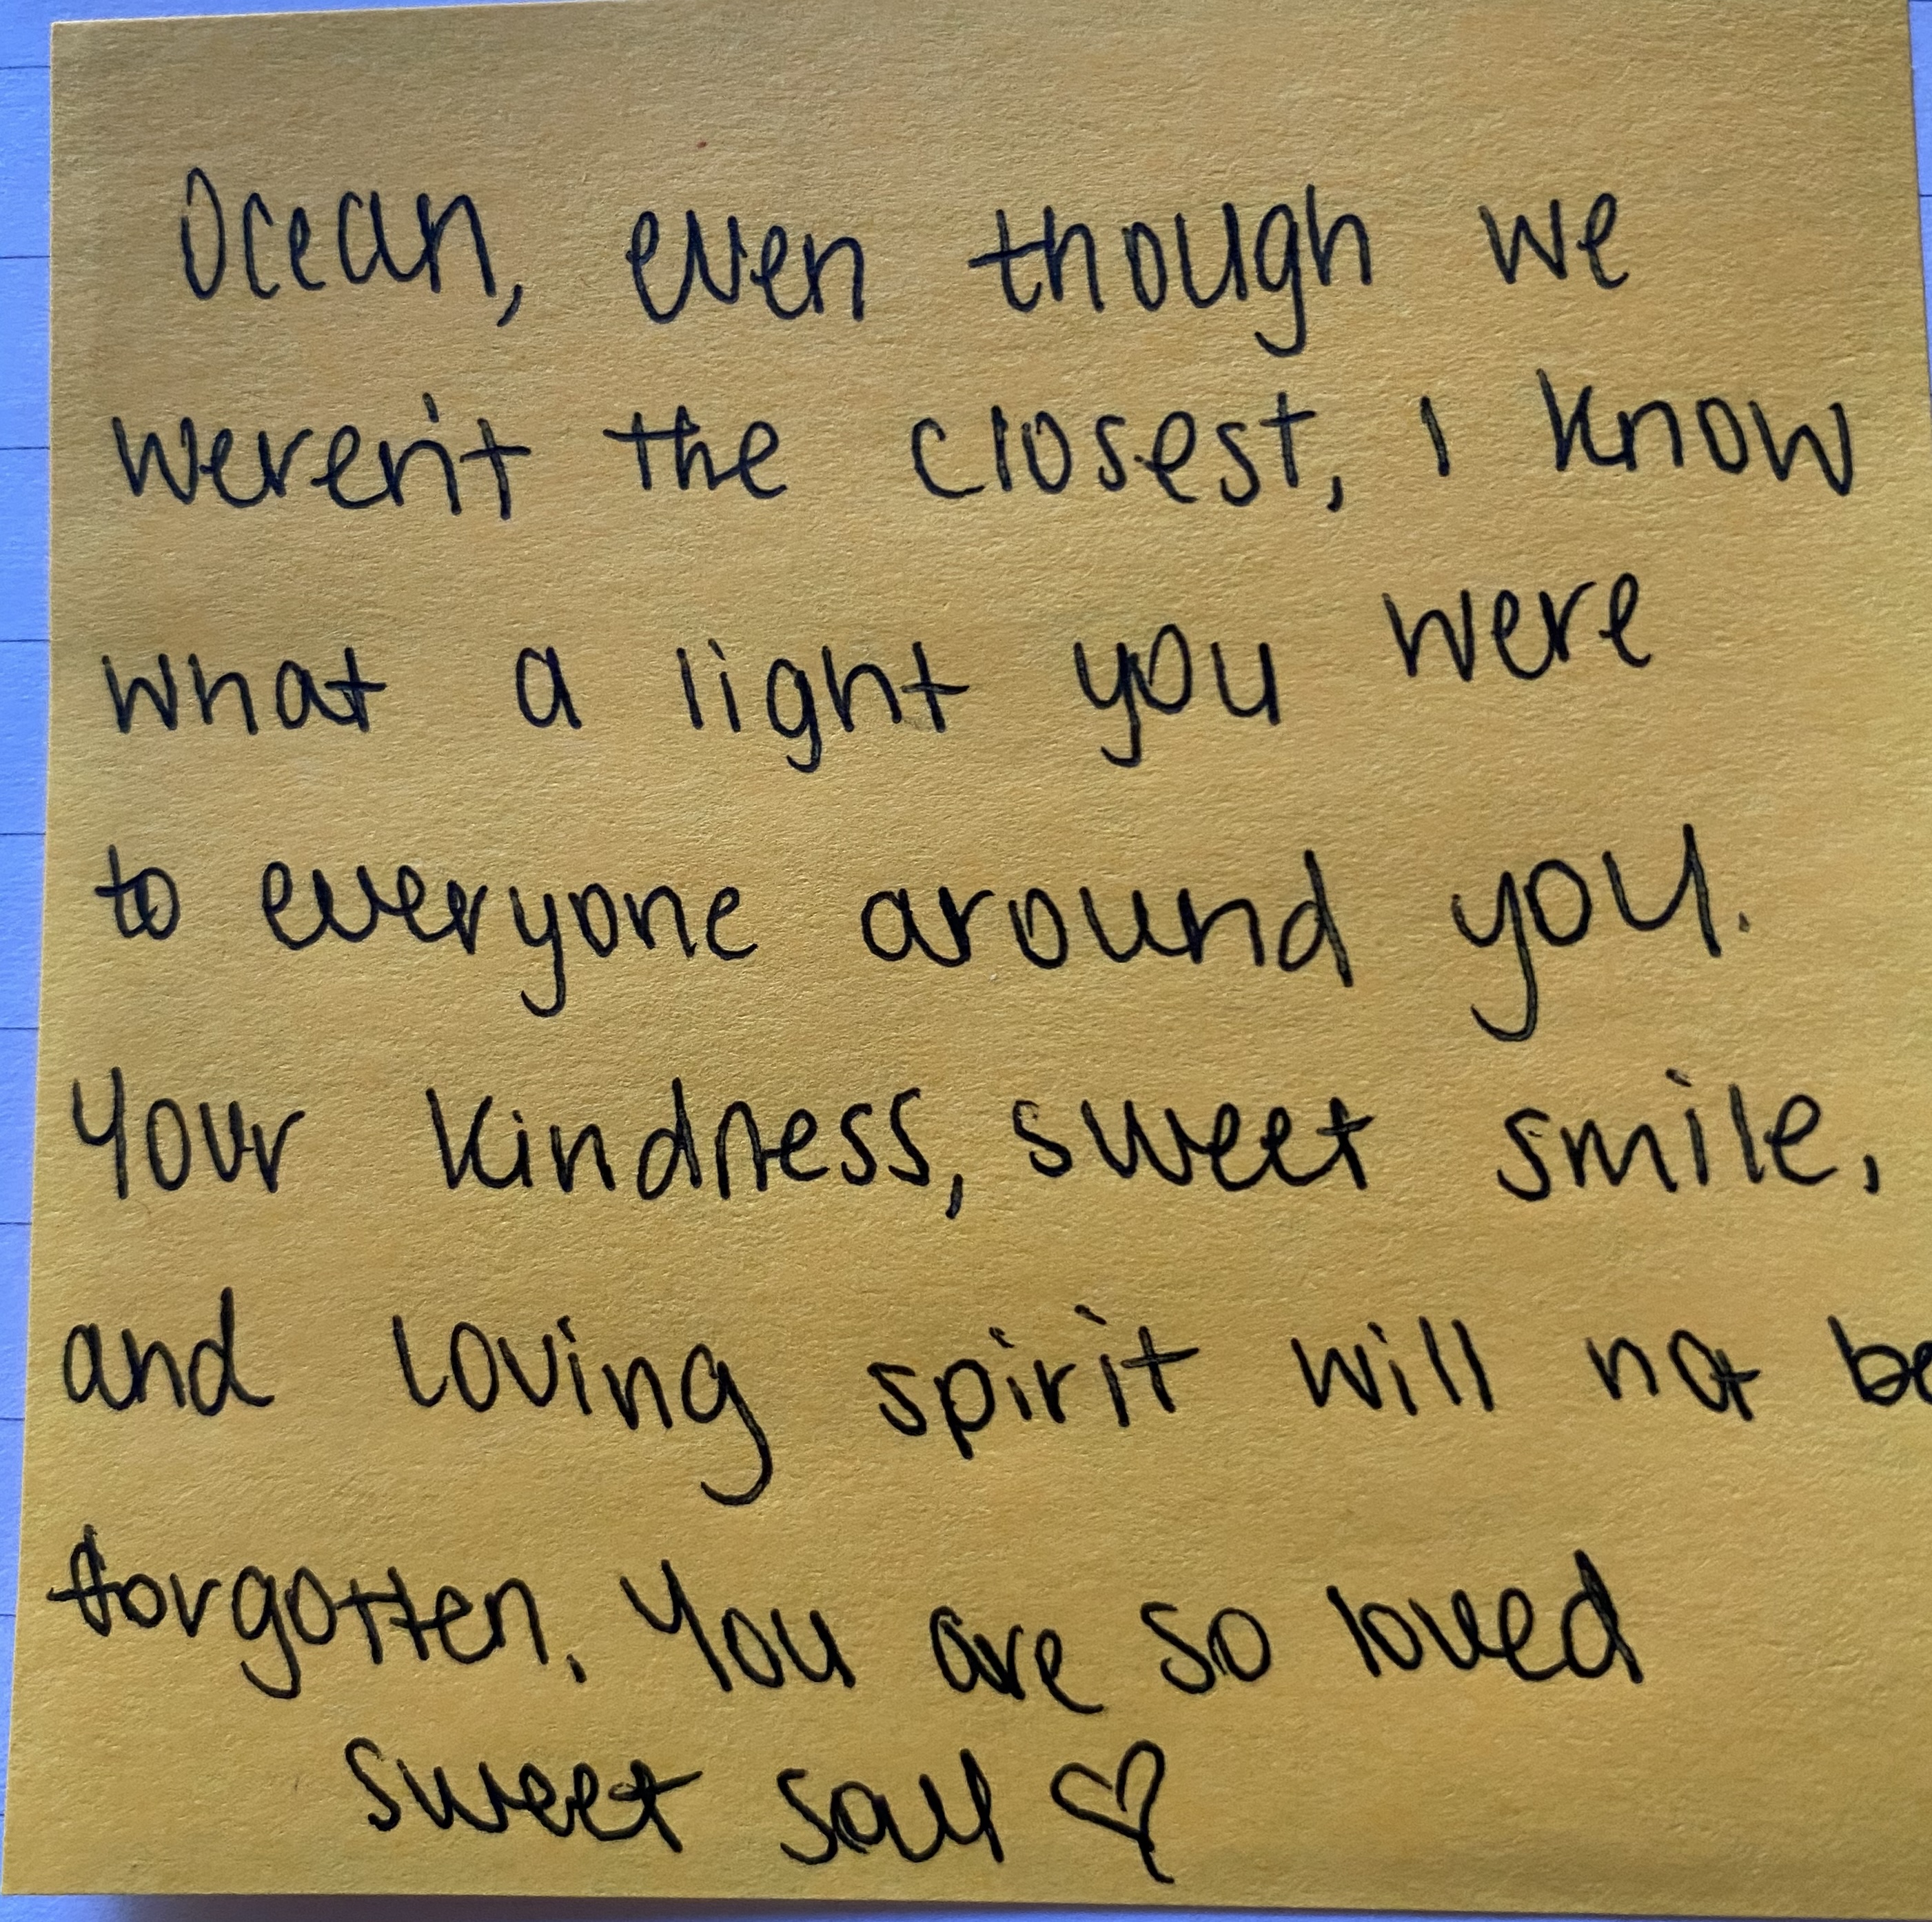 Ocean, even though we
weren't the closest, I know
what a light you were
to everyone around you.
Your kindness, sweet smile,
and loving spirit will not be
forgotten. You are so loved
sweet soul ♡